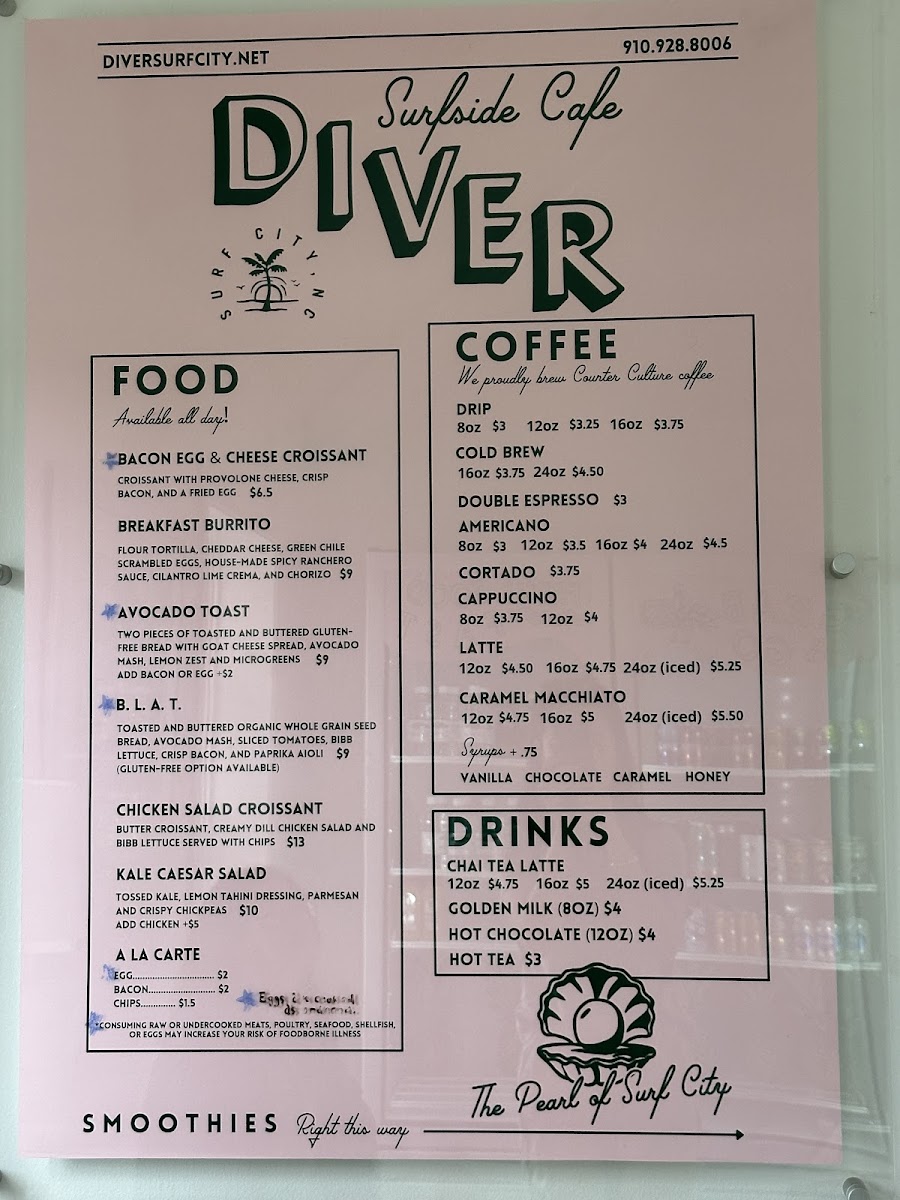 DIVERSURFCITY.NET
910.928.8006
Surfside Cafe
DIVER
SURF CITY, NC
FOOD
Available all day!
BACON EGG & CHEESE CROISSANT
CROISSANT WITH PROVOLONE CHEESE, CRISP
BACON, AND A FRIED EGG $6.5
BREAKFAST BURRITO
FLOUR TORTILLA, CHEDDAR CHEESE, GREEN CHILE
SCRAMBLED EGGS, HOUSE-MADE SPICY RANCHERO
SAUCE, CILANTRO LIME CREMA, AND CHORIZO $9
AVOCADO TOAST
TWO PIECES OF TOASTED AND BUTTERED GLUTEN-
FREE BREAD WITH GOAT CHEESE SPREAD, AVOCADO
MASH, LEMON ZEST AND MICROGREENS $9
ADD BACON OR EGG +$2
B. L. A. T.
TOASTED AND BUTTERED ORGANIC WHOLE GRAIN SEED
BREAD, AVOCADO MASH, SLICED TOMATOES, BIBB
LETTUCE, CRISP BACON, AND PAPRIKA AIOLI $9
(GLUTEN-FREE OPTION AVAILABLE)
CHICKEN SALAD CROISSANT
BUTTER CROISSANT, CREAMY DILL CHICKEN SALAD AND
BIBB LETTUCE SERVED WITH CHIPS $13
KALE CAESAR SALAD
TOSSED KALE, LEMON TAHINI DRESSING, PARMESAN
AND CRISPY CHICKPEAS $10
ADD CHICKEN +$5
A LA CARTE
EGG................................ $2
BACON........................... $2
CHIPS.............. $1.5
Eggs
*CONSUMING RAW OR UNDERCOOKED MEATS, POULTRY, SEAFOOD, SHELLFISH,
OR EGGS MAY INCREASE YOUR RISK OF FOODBORNE ILLNESS
COFFEE
We proudly brew Counter Culture coffee
DRIP
8oz $3 12oz $3.25 16oz $3.75
COLD BREW
16oz $3.75 24oz $4.50
DOUBLE ESPRESSO $3
AMERICANO
8oz $3 12oz $3.5 16oz $4 24oz $4.5
CORTADO $3.75
CAPPUCCINO
8oz $3.75 12oz $4
LATTE
12oz $4.50 16oz $4.75 24oz (iced) $5.25
CARAMEL MACCHIATO
12oz $4.75 16oz $5 24oz (iced) $5.50
Syrups + .75
VANILLA CHOCOLATE CARAMEL HONEY
DRINKS
CHAI TEA LATTE
12oz $4.75 16oz $5 24oz (iced) $5.25
GOLDEN MILK (8OZ) $4
HOT CHOCOLATE (12OZ) $4
HOT TEA $3
The Pearl of Surf City
SMOOTHIES Right this way